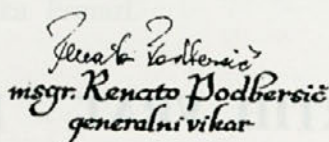 Renato Podbersič
msgr. Renato Podbersič
generalni vikar